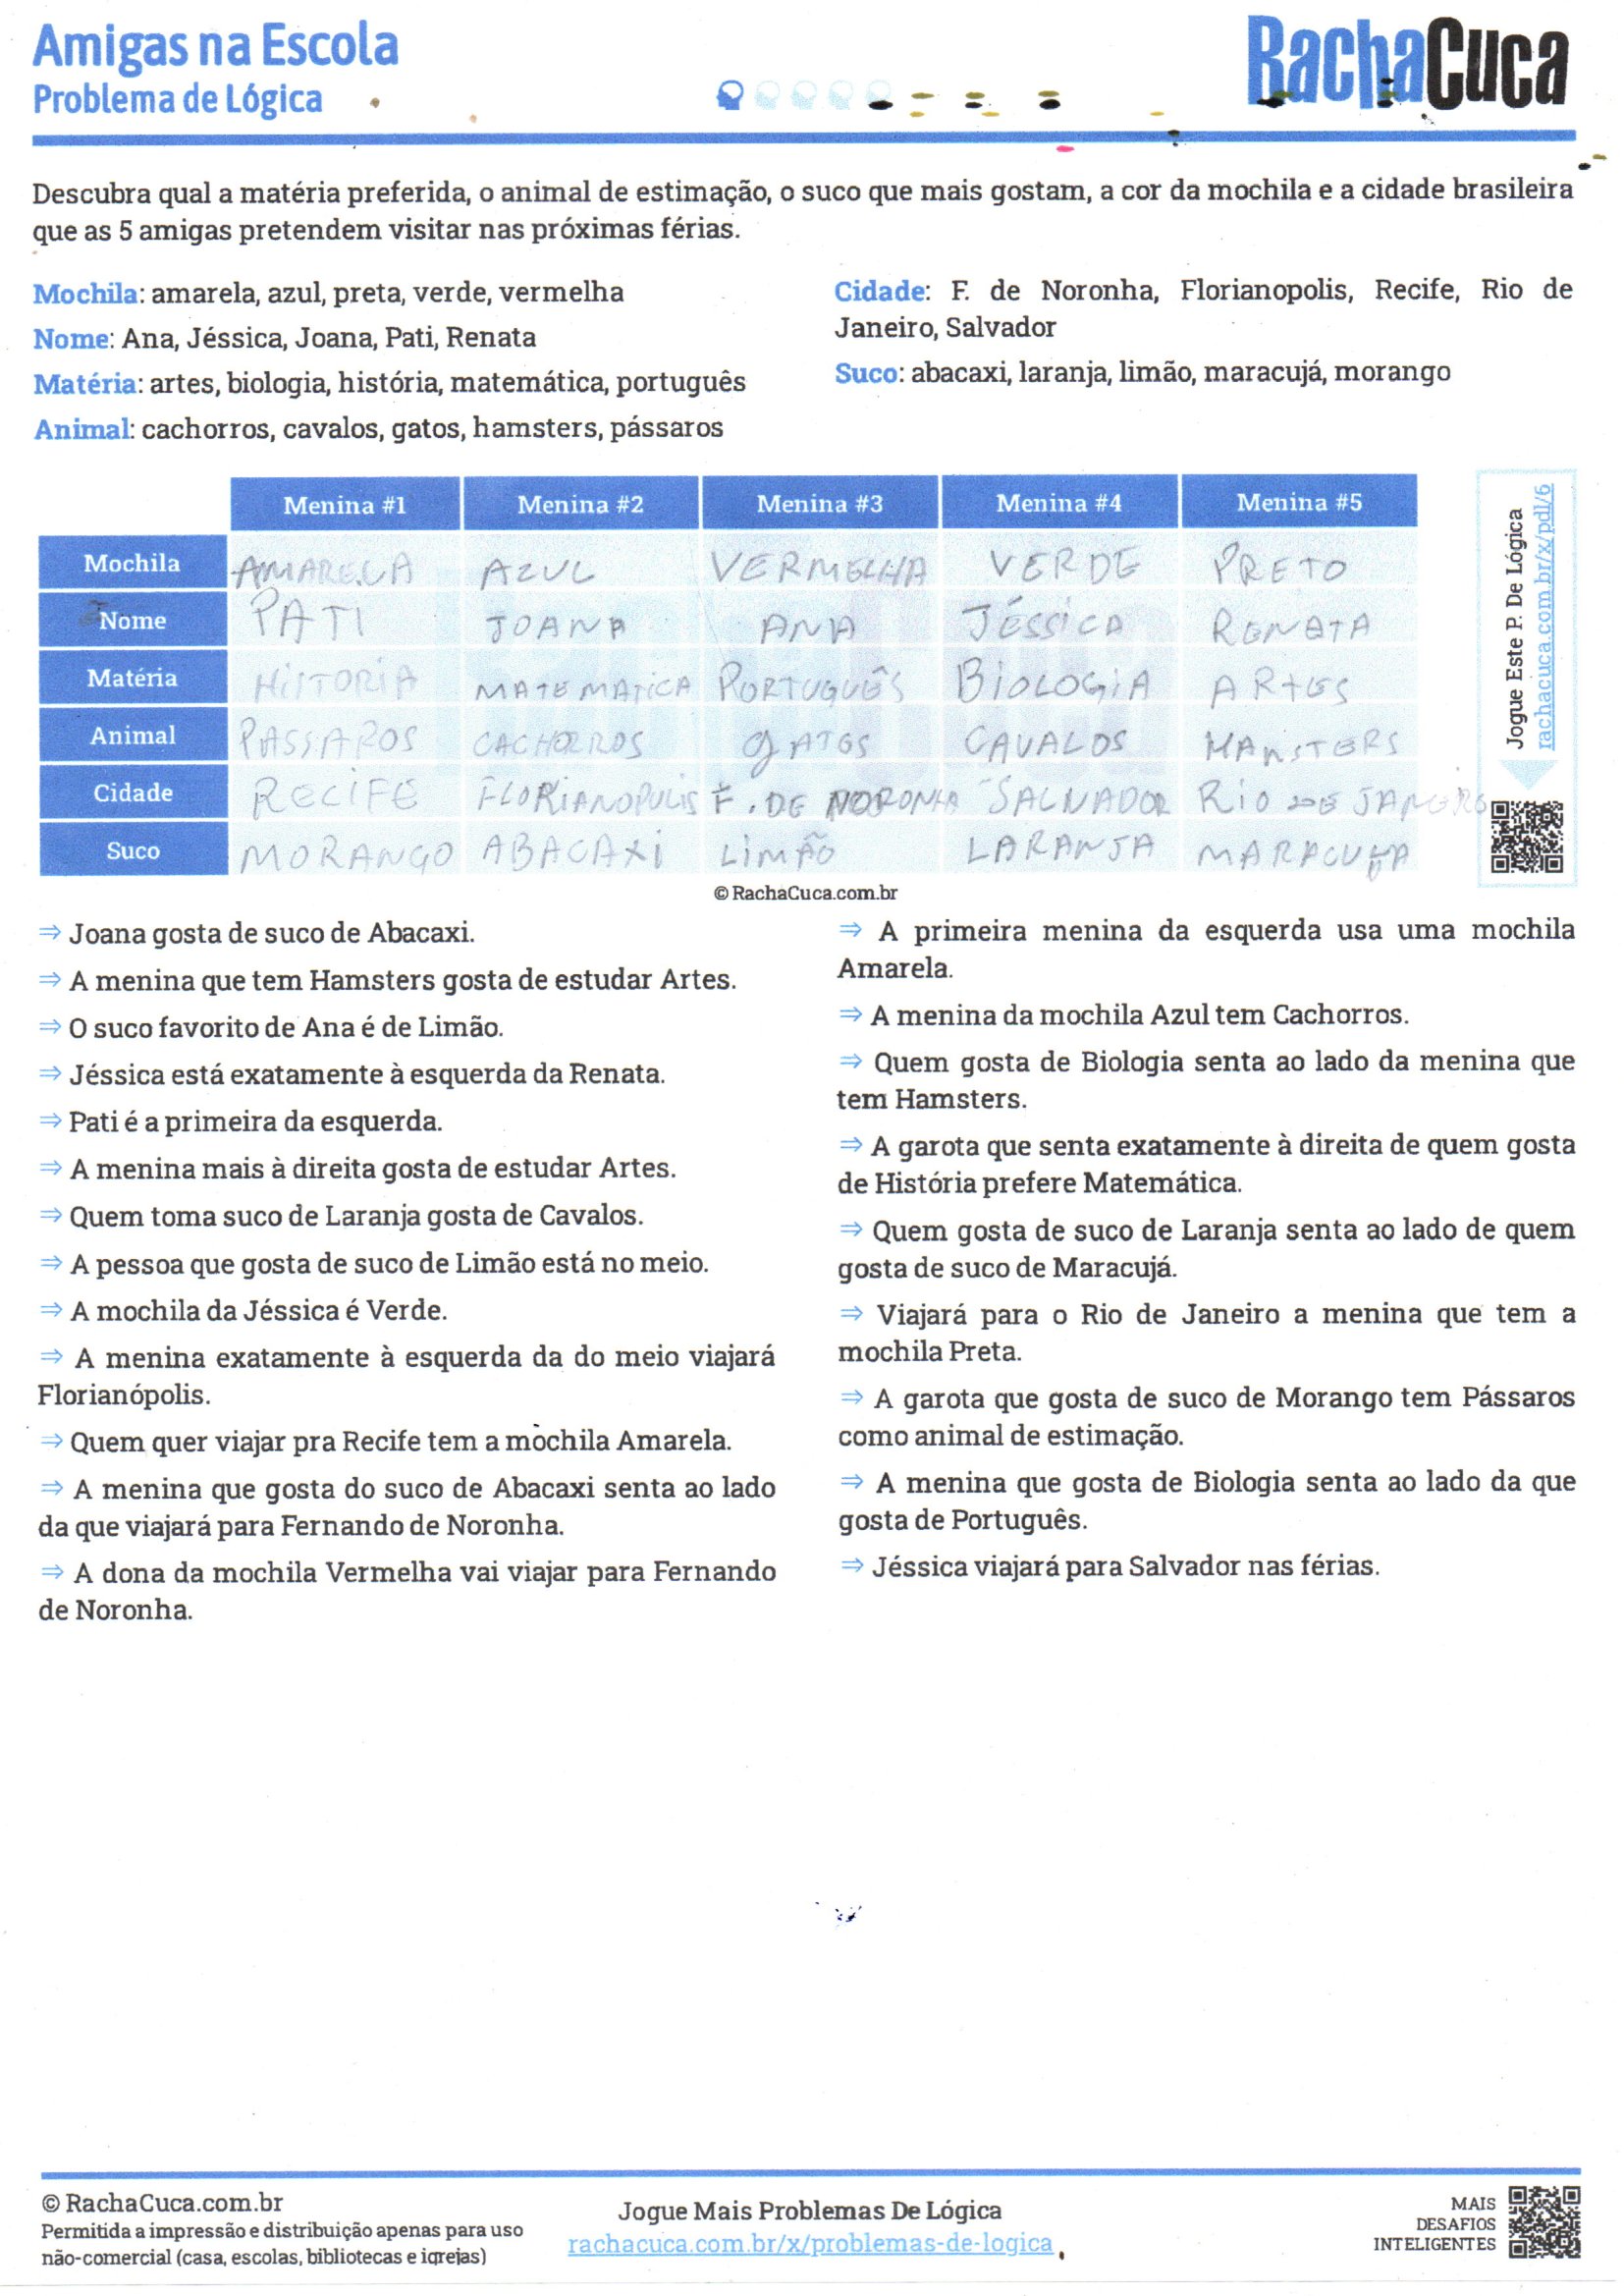 Amigas na Escola
Problema de Lógica
RachaCuca
Descubra qual a matéria preferida, o animal de estimação, o suco que mais gostam, a cor da mochila e a cidade brasileira
que as 5 amigas pretendem visitar nas próximas férias.
Mochila: amarela, azul, preta, verde, vermelha
Nome: Ana, Jéssica, Joana, Pati, Renata
Matéria: artes, biologia, história, matemática, português
Animal: cachorros, cavalos, gatos, hamsters, pássaros
Cidade: F. de Noronha, Florianopolis, Recife, Rio de
Janeiro, Salvador
Suco: abacaxi, laranja, limão, maracujá, morango
Menina #1 Menina #2 Menina #3 Menina #4 Menina #5
Mochila AMARELA AZUL VERMELHA VERDE PRETO
Nome PATI JOANA ANA JÉSSICA RENATA
Matéria HISTORIA MATEMATICA PORTUGUÊS BIOLOGIA ARTES
Animal PASSAROS CACHORROS GATOS CAVALOS HAMSTERS
Cidade RECIFE FLORIANOPULIS F. DE NORONHA SALVADOR RIO DE JANEIRO
Suco MORANGO ABACAXI LIMÃO LARANJA MARACUJA
Jogue Este P. De Lógica
rachacuca.com.br/x/pdl/6
© RachaCuca.com.br
⇒ Joana gosta de suco de Abacaxi.
⇒ A menina que tem Hamsters gosta de estudar Artes.
⇒ O suco favorito de Ana é de Limão.
⇒ Jéssica está exatamente à esquerda da Renata.
⇒ Pati é a primeira da esquerda.
⇒ A menina mais à direita gosta de estudar Artes.
⇒ Quem toma suco de Laranja gosta de Cavalos.
⇒ A pessoa que gosta de suco de Limão está no meio.
⇒ A mochila da Jéssica é Verde.
⇒ A menina exatamente à esquerda da do meio viajará
Florianópolis.
⇒ Quem quer viajar pra Recife tem a mochila Amarela.
⇒ A menina que gosta do suco de Abacaxi senta ao lado
da que viajará para Fernando de Noronha.
⇒ A dona da mochila Vermelha vai viajar para Fernando
de Noronha.
⇒ A primeira menina da esquerda usa uma mochila
Amarela.
⇒ A menina da mochila Azul tem Cachorros.
⇒ Quem gosta de Biologia senta ao lado da menina que
tem Hamsters.
⇒ A garota que senta exatamente à direita de quem gosta
de História prefere Matemática.
⇒ Quem gosta de suco de Laranja senta ao lado de quem
gosta de suco de Maracujá.
⇒ Viajará para o Rio de Janeiro a menina que tem a
mochila Preta.
⇒ A garota que gosta de suco de Morango tem Pássaros
como animal de estimação.
⇒ A menina que gosta de Biologia senta ao lado da que
gosta de Português.
⇒ Jéssica viajará para Salvador nas férias.
© RachaCuca.com.br
Permitida a impressão e distribuição apenas para uso
não-comercial (casa, escolas, bibliotecas e igrejas)
Jogue Mais Problemas De Lógica
rachacuca.com.br/x/problemas-de-logica
MAIS
DESAFIOS
INTELIGENTES